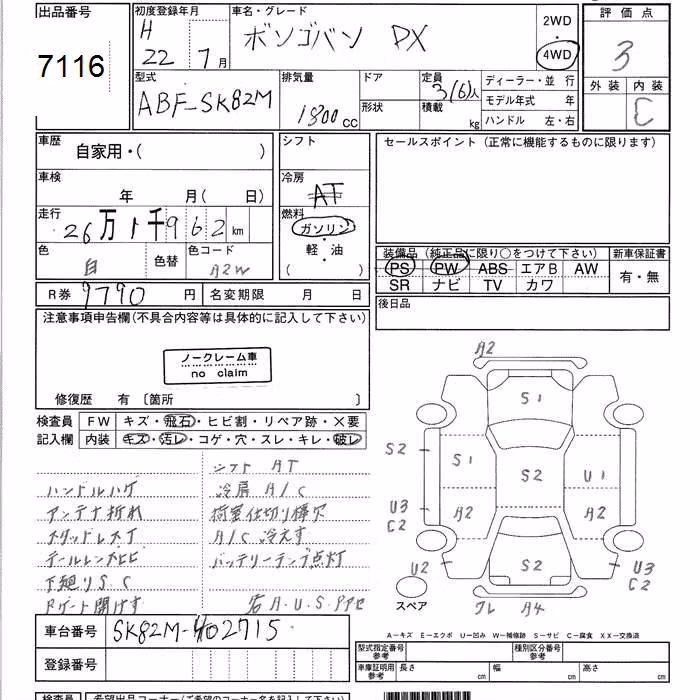 出品番号
7116
初度登録年月
H 22 7月
車名・グレード
ボンゴバン DX
2WD
・
4WD
評価点
3
外装 内装
C
型式
ABF-SK82M
排気量
1800cc
ドア
形状
定員
3(6)人
積載
kg
ディーラー・並行
モデル年式 年
ハンドル 左・右
車歴
自家用・( )
車検
年 月( 日)
走行
26万1千962km
色
白
色替
色コード
A2W
シフト
冷房
AT
燃料
ガソリン
・
軽・油
( )
セールスポイント(正常に機能するものに限ります)
装備品(純正品に限り○をつけて下さい)
PS PW ABS エアB AW
SR ナビ TV カワ
新車保証書
有・無
後日品
R券 9790円
名変期限 月 日
注意事項申告欄(不具合内容等は具体的に記入して下さい)
ノークレーム車
no claim
修復歴 有〔箇所 〕
検査員
記入欄
FW キズ・飛石・ヒビ割・リペア跡・×要
内装 キズ・汚レ・コゲ・穴・スレ・キレ・破レ
シフト AT
ハンドルハゲ
冷房 A/C
アンテナ折れ
荷室仕切り棒欠
スタッドレス丁
A/C 冷えず
テールレンズヒビ
バッテリーランプ点灯
下廻りS.C
Rゲート開けず
A2
S1
S2
S1
S2
U1
U3
C2
A2
A2
U2
S2
U3
C2
スペア
クレ A4
A-キズ E-エクボ U-凹み W-補修跡 S-サビ C-腐食 XX-交換済
車台番号
SK82M-402715
登録番号
型式指定番号
参考
種別区分番号
参考
車庫証明用
参考
長さ cm
幅 cm
高さ cm
検査員
希望出品コーナー(ご希望のコーナー名を記入下さい)